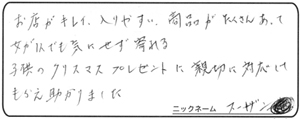 お店がキレイ、入りやすい、商品がたくさんあって
女が1人でも気にせず寄れる
子供のクリスマスプレゼントに親切に対応して
もらえ助かりました
ニックネーム スーザン